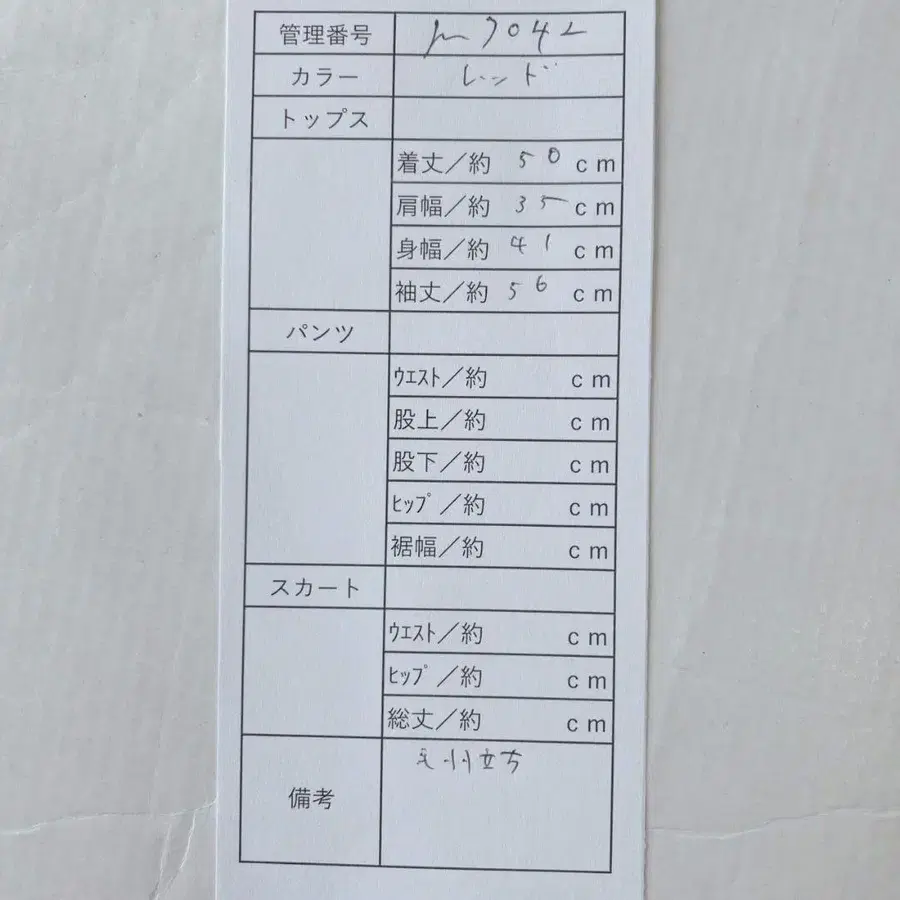 管理番号 m7042
カラー レッド
トップス
着丈／約 50 cm
肩幅／約 35 cm
身幅／約 41 cm
袖丈／約 56 cm
パンツ
ｳｴｽﾄ／約 cm
股上／約 cm
股下／約 cm
ﾋｯﾌﾟ／約 cm
裾幅／約 cm
スカート
ｳｴｽﾄ／約 cm
ﾋｯﾌﾟ／約 cm
総丈／約 cm
備考 毛羽立ち